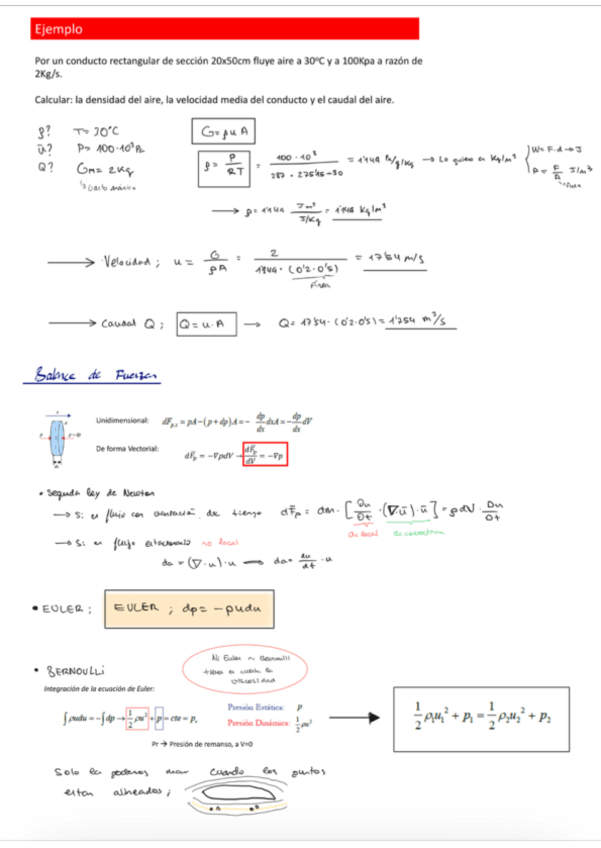 Ejemplo
Por un conducto rectangular de sección 20x50cm fluye aire a 30ºC y a 100Kpa a razón de
2Kg/s.
Calcular: la densidad del aire, la velocidad media del conducto y el caudal del aire.
ρ? T= 30ºC G=ρuA
ū? P= 100·10³ Pa
Q? Gm= 2Kg
ρ = P/RT = 100·10³ / → Lo quiero en Kg/m³ W= F·d → J
P = F/A J/m³
→ ρ=
→ Velocidad; u = G/ρA = 2 / (0'2·0'5) = 17'54 m/s
Área
→ Caudal Q; Q = u·A → Q= 17'54·(0'2·0'5) = 1'754 m³/s
Balance de Fuerzas
Unidimensional: dF_{p,x} = pA−(p+dp)A = − dp/dx dxA = − dp/dx dV
De forma Vectorial: dF̄_p = −∇pdV → dF̄_p/dV = −∇p
• Segunda ley de Newton
→ Si es flujo con variación de tiempo dF̄p = dm · [Du/Dt · (∇ū)·ū] = ρdV · Du/Dt
ac local ac convectiva
→ Si es flujo estacionario no local
da = (∇·u)·u → da= du/dt · u
• EULER; EULER ; dp= −ρudu
Ni Euler ni Bernoulli
tiene en cuenta la
viscosidad
• BERNOULLI
Integración de la ecuación de Euler:
∫ρudu = −∫dp → 1/2 ρu² + p = cte = pᵣ
Presión Estática: p
Presión Dinámica: 1/2 ρu²
1/2 ρ₁u₁² + p₁ = 1/2 ρ₂u₂² + p₂
Pr → Presión de remanso, a V=0
Solo la podemos usar cuando los puntos
estan alineados;
A B